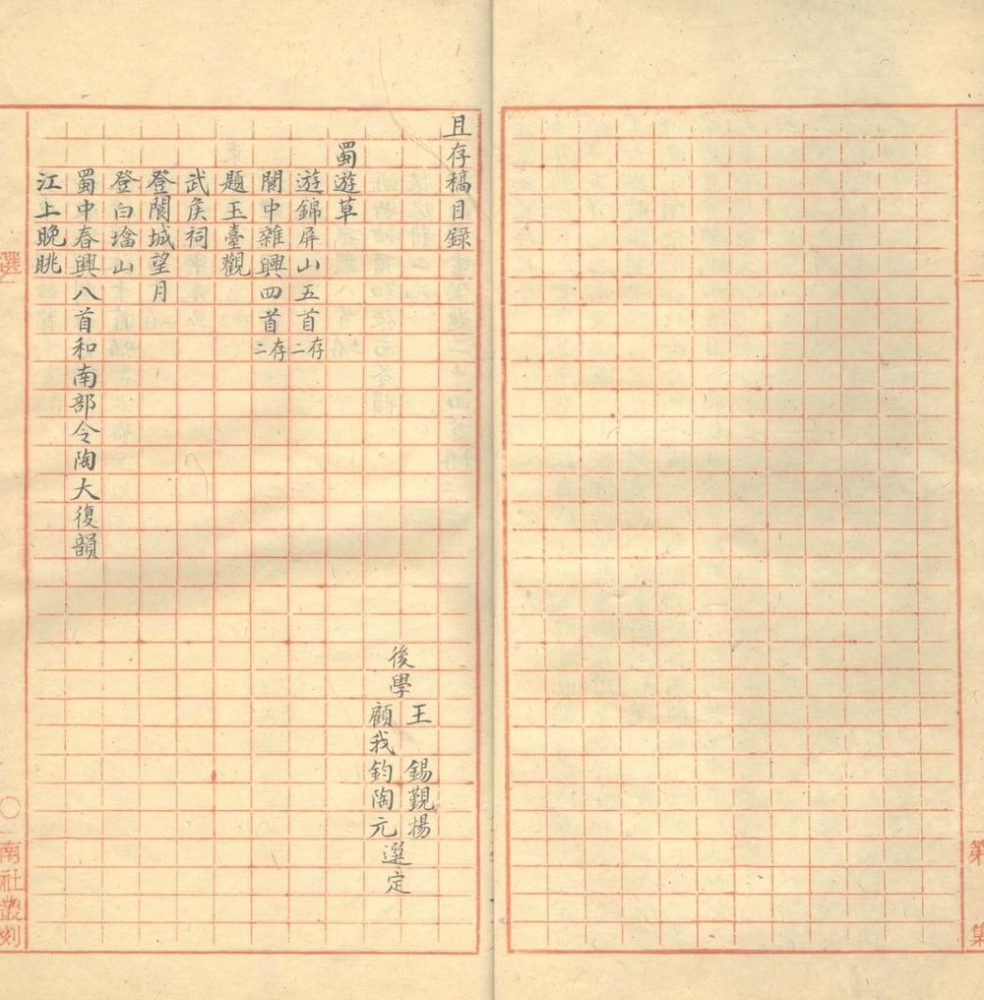 第 集
且存稿目錄
後學
王 錫覲楊
顧我鈞陶元
選定
蜀遊草
遊錦屏山五首存二
閬中雜興四首存二
題玉臺觀
武侯祠
登閬城望月
登白墖山
蜀中春興八首和南部令陶大復韻
江上晚眺
選
〇南社叢刻